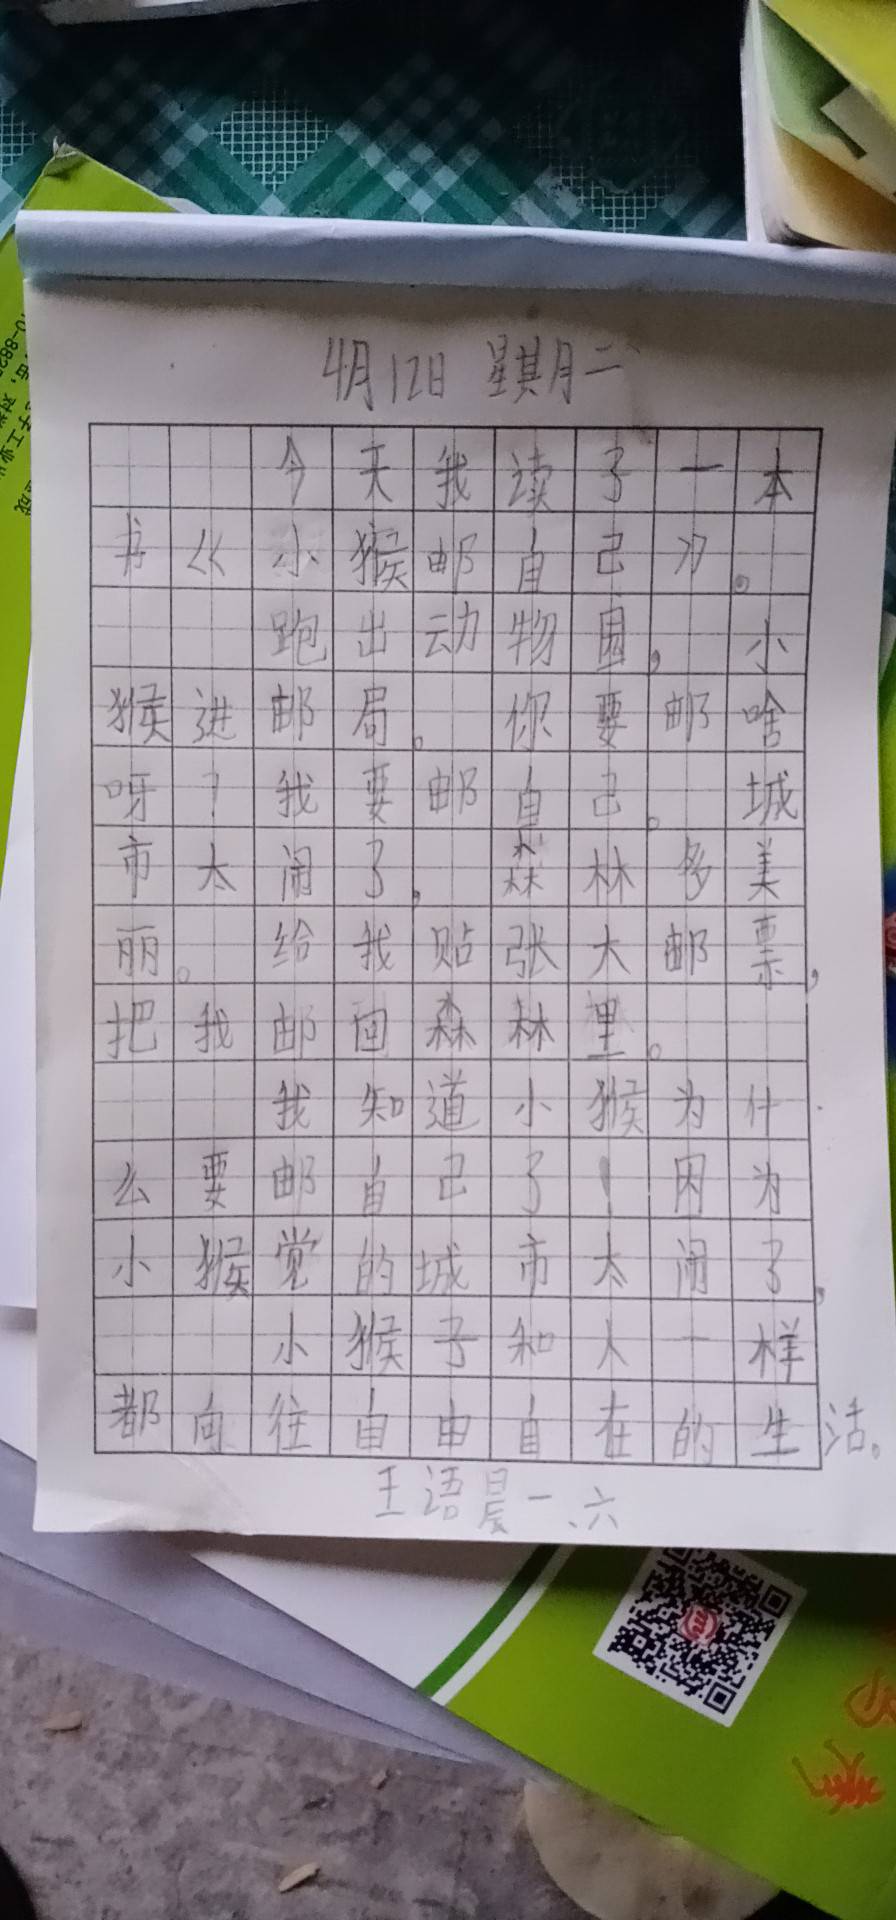 4月12日 星期二
今天我读了一本
书《小猴邮自己》。
跑出动物园，小
猴进邮局。你要邮啥
呀？我要邮自己。城
市太闹了，森林多美
丽。给我贴张大邮票，
把我邮回森林里。
我知道小猴为什
么要邮自己了！因为
小猴觉的城市太闹了，
小猴子和人一样
都向往自由自在的生活。
王语晨一、六